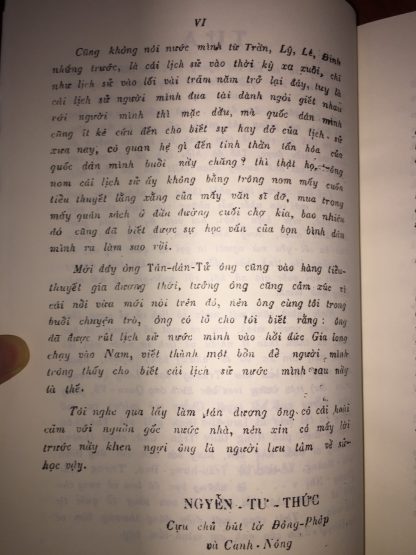 VI
Cũng không nói nước mình từ Trần, Lý, Lê, Đinh
những trước, là cái lịch sử vào thời kỳ xa xuôi, chỉ
như lịch sử vào lối vài trăm năm trở lại đây, tuy là
cái lịch sử người mình đua tài dành ngôi giết nhau
với người mình thì mặc dầu, mà quốc dân mình
cũng ít kẻ cứu đến cho biết sự hay dở của lịch-sử
xưa nay, có quan hệ gì đến tinh thần tấn hóa của
quốc dân mình buổi này chăng? thì thật họ trông
nom cái lịch sử ấy không bằng trông nom mấy cuốn
tiểu thuyết lăng xăng của mấy văn sĩ dở, mua trong
mấy quán sách ở đầu đường cuối chợ kia, bao nhiêu
đó cũng đã biết được sự học vấn của bọn bình dân
mình ra làm sao rồi.
Mới đây ông Tân-dân-Tử ông cũng vào hàng tiểu-
thuyết gia đương thời, tưởng ông cũng cảm xúc vì
cái nỗi vừa mới nói trên đó, nên ông cùng tôi trong
buổi chuyện trò, ông có tỏ cho tôi biết rằng: ông
đã được rút lịch sử nước mình vào hồi đức Gia long
chạy vào Nam, viết thành một bổn để người mình
trông thấy cho biết cái lịch sử nước mình sau này
là thế.
Tôi nghe qua lấy làm tán dương ông có cái hoài
cảm với nguồn gốc nước nhà, nên xin có mấy lời
trước nầy khen ngợi ông là người lưu tâm về sử-
học vậy.
NGUYỄN-TƯ-THỨC
Cựu chủ bút tờ Đông-Pháp
và Canh-Nông